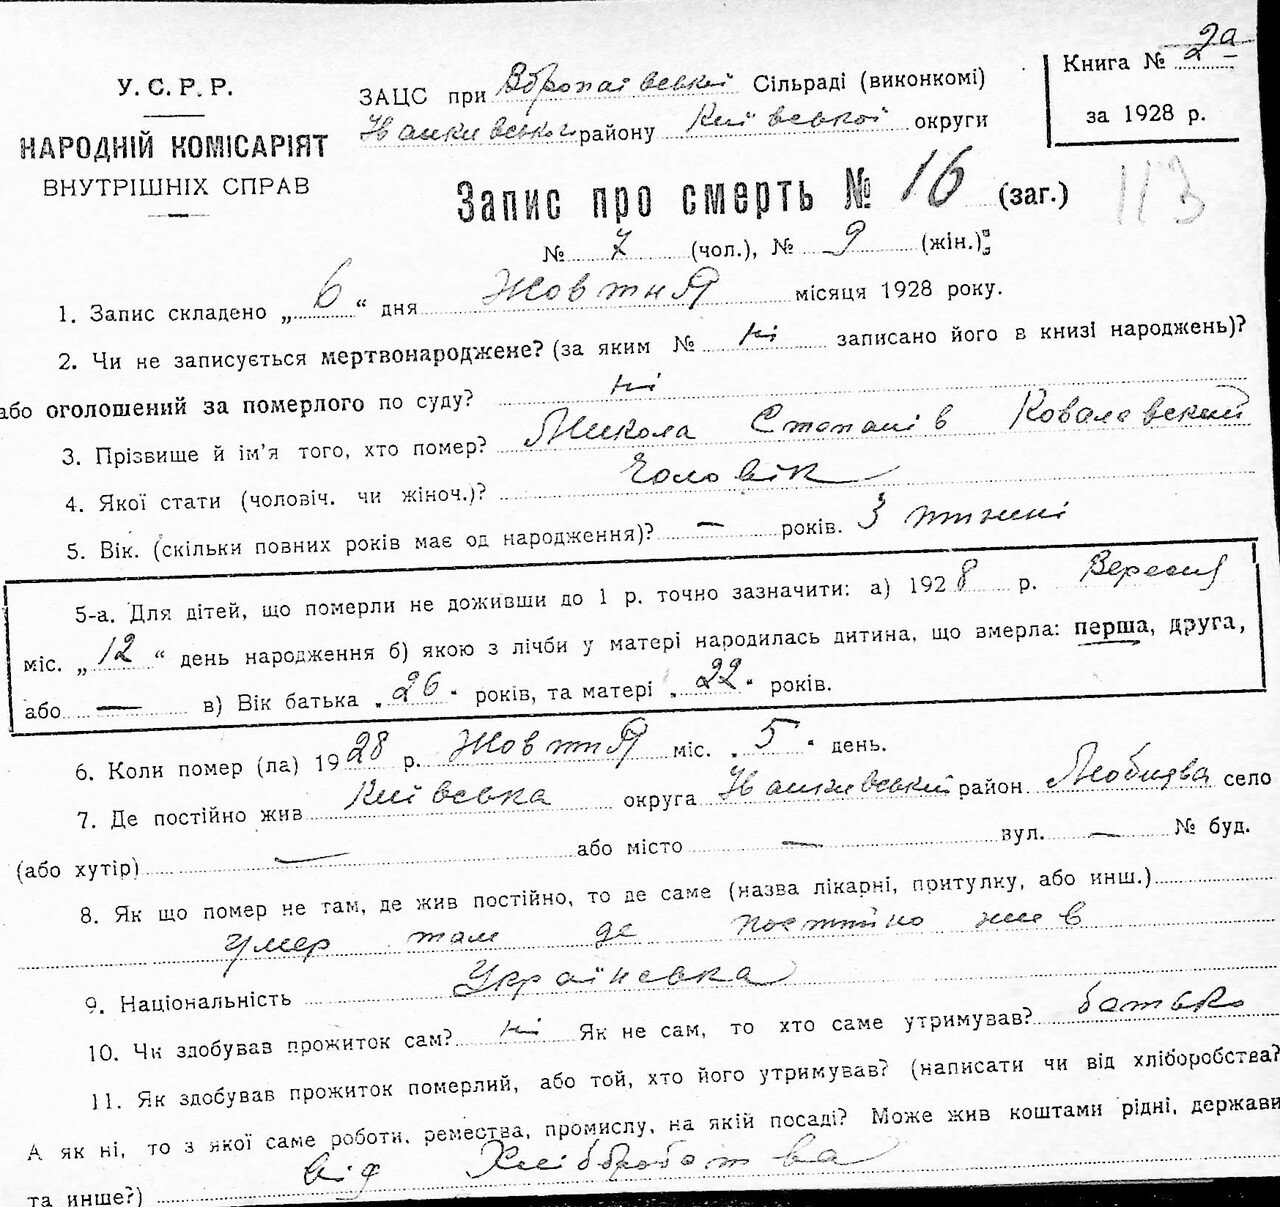 У.С.Р.Р.
НАРОДНІЙ КОМІСАРІЯТ
ВНУТРІШНІХ СПРАВ
ЗАЦС при Сільраді (виконкомі)
Іванківського району Київської округи
Книга № 2а
за 1928 р.
113
Запис про смерть № 16 (заг.)
№ 7 (чол.), № 9 (жін.)
1. Запис складено „ 6 “ дня Жовтня місяця 1928 року.
2. Чи не записується мертвонароджене? (за яким № ні записано його в книзі народжень)?
або оголошений за померлого по суду? ні
3. Прізвище й ім’я того, хто помер? Микола Степанів Ковалевский
4. Якої стати (чоловіч. чи жіноч.)? Чоловік
5. Вік. (скільки повних років має од народження)? — років. 3 тижні
5-а. Для дітей, що померли не доживши до 1 р. точно зазначити: а) 1928 р. Вересня
міс. „ 12 “ день народження б) якою з лічби у матері народилась дитина, що вмерла: перша, друга,
або — в) Вік батька „ 26 “ років, та матері „ 22 “ років.
6. Коли помер (ла) 1928 р. Жовтня міс. „ 5 “ день.
7. Де постійно жив Київська округа Іванківський район село
(або хутір) — або місто — вул. — № буд.
8. Як що помер не там, де жив постійно, то де саме (назва лікарні, притулку, або инш.)
Умер там де постійно жив
9. Національність Українська
10. Чи здобував прожиток сам? ні Як не сам, то хто саме утримував? батько
11. Як здобував прожиток померлий, або той, хто його утримував? (написати чи від хліборобства?
А як ні, то з якої саме роботи, ремества, промислу, на якій посаді? Може жив коштами рідні, держави
та инше?) від Хліборобства